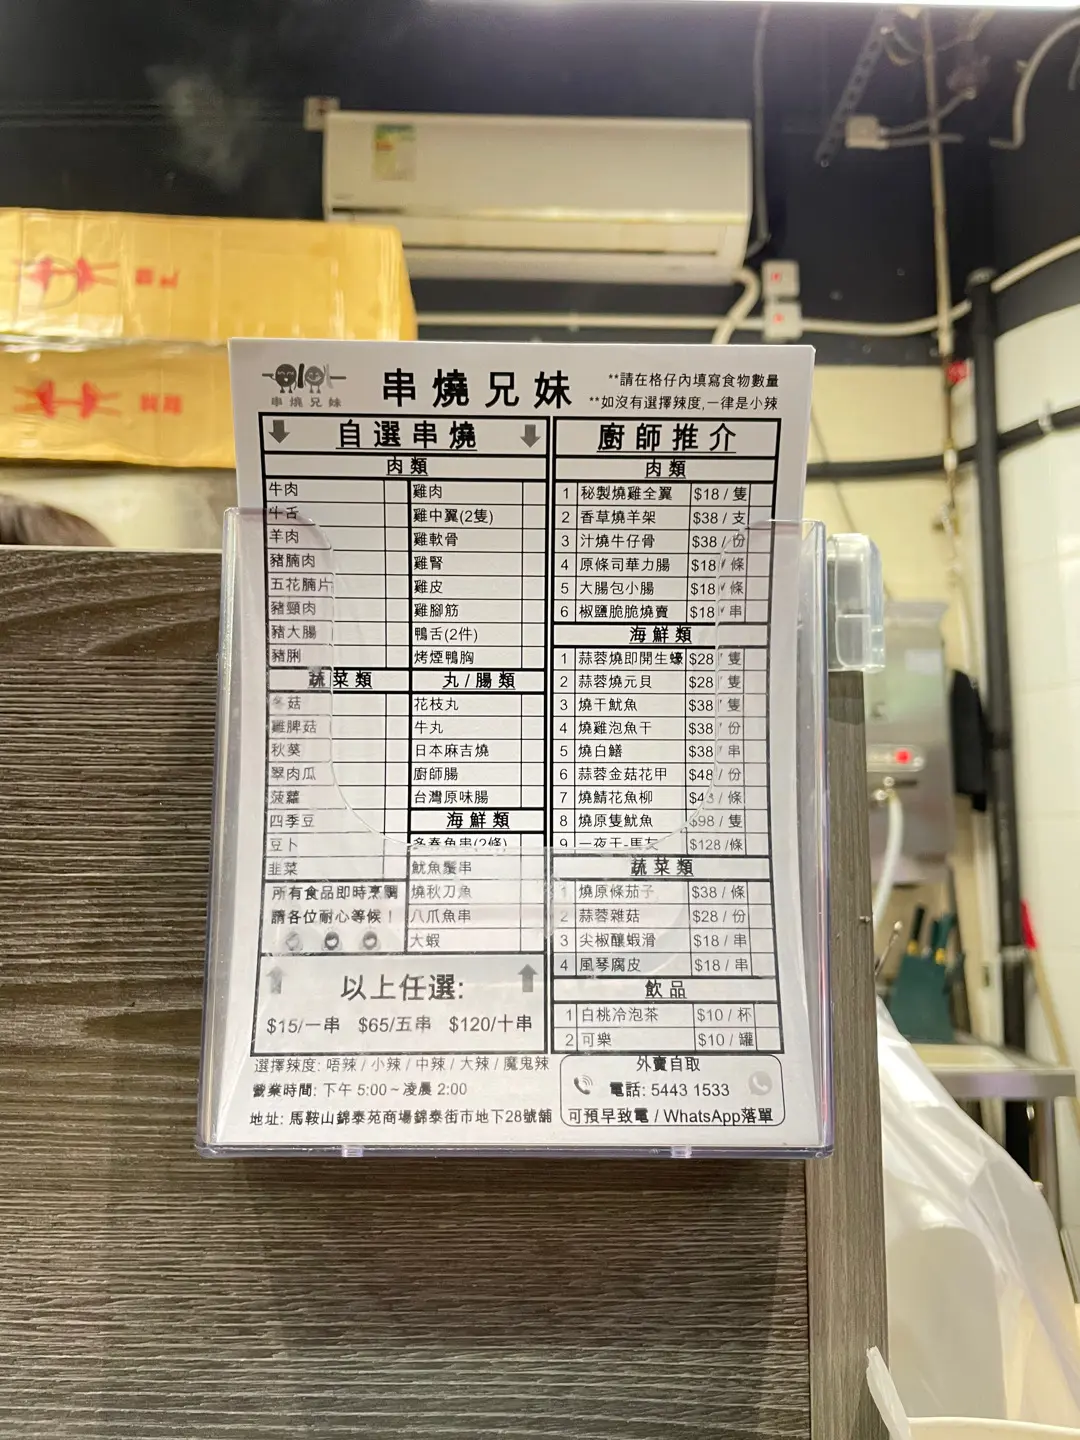 串燒兄妹
串燒兄妹
**請在格仔內填寫食物數量
**如沒有選擇辣度,一律是小辣
自選串燒
肉類
牛肉 雞肉
牛舌 雞中翼(2隻)
羊肉 雞軟骨
豬腩肉 雞腎
五花腩片 雞皮
豬頸肉 雞腳筋
豬大腸 鴨舌(2件)
豬脷 烤煙鴨胸
蔬菜類 丸/腸類
冬菇 花枝丸
雞脾菇 牛丸
秋葵 日本麻吉燒
翠肉瓜 廚師腸
菠蘿 台灣原味腸
四季豆 海鮮類
豆卜 多春魚串(2條)
韭菜 魷魚鬚串
所有食品即時烹調 燒秋刀魚
請各位耐心等候! 八爪魚串
大蝦
以上任選:
$15/一串 $65/五串 $120/十串
廚師推介
肉類
1 秘製燒雞全翼 $18 / 隻
2 香草燒羊架 $38 / 支
3 汁燒牛仔骨 $38 / 份
4 原條司華力腸 $18 / 條
5 大腸包小腸 $18 / 條
6 椒鹽脆脆燒賣 $18 / 串
海鮮類
1 蒜蓉燒即開生蠔 $28 / 隻
2 蒜蓉燒元貝 $28 / 隻
3 燒干魷魚 $38 / 隻
4 燒雞泡魚干 $38 / 份
5 燒白鱔 $38 / 串
6 蒜蓉金菇花甲 $48 / 份
7 燒鯖花魚柳 $43 / 條
8 燒原隻魷魚 $98 / 隻
9 一夜干-馬友 $128 /條
蔬菜類
1 燒原條茄子 $38 / 條
2 蒜蓉雜菇 $28 / 份
3 尖椒釀蝦滑 $18 / 串
4 風琴腐皮 $18 / 串
飲品
1 白桃冷泡茶 $10 / 杯
2 可樂 $10 / 罐
選擇辣度: 唔辣 / 小辣 / 中辣 / 大辣 / 魔鬼辣
營業時間: 下午 5:00 ~ 凌晨 2:00
地址: 馬鞍山錦泰苑商場錦泰街市地下28號舖
外賣自取
電話: 5443 1533
可預早致電 / WhatsApp落單